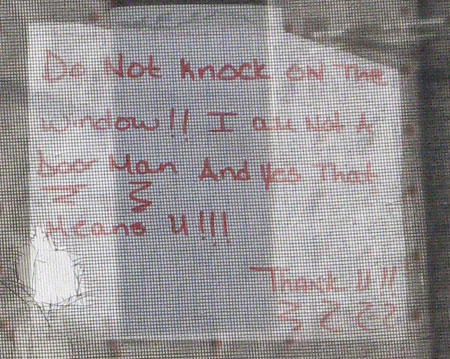 Do Not Knock ON The
Window!! I am Not A
Door Man And Yes That
Means U!!!
Thank U!!